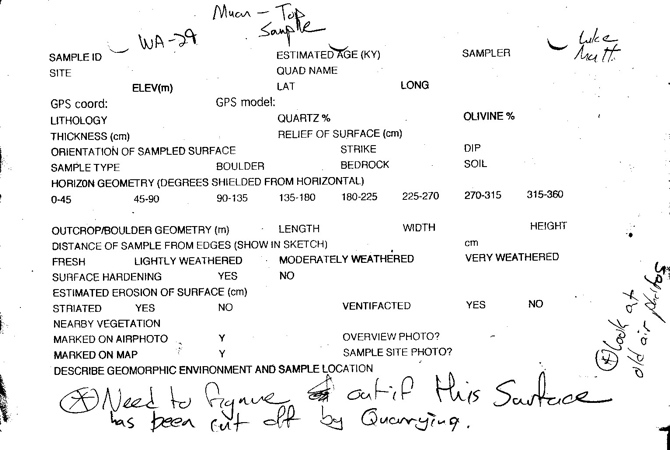 Muan - Top
Sample
SAMPLE ID WA-29 ESTIMATED AGE (KY) SAMPLER Luke Matt.
SITE QUAD NAME
ELEV(m) LAT LONG
GPS coord: GPS model:
LITHOLOGY QUARTZ % OLIVINE %
THICKNESS (cm) RELIEF OF SURFACE (cm)
ORIENTATION OF SAMPLED SURFACE STRIKE DIP
SAMPLE TYPE BOULDER BEDROCK SOIL
HORIZON GEOMETRY (DEGREES SHIELDED FROM HORIZONTAL)
0-45 45-90 90-135 135-180 180-225 225-270 270-315 315-360
OUTCROP/BOULDER GEOMETRY (m) LENGTH WIDTH HEIGHT
DISTANCE OF SAMPLE FROM EDGES (SHOW IN SKETCH) cm
FRESH LIGHTLY WEATHERED MODERATELY WEATHERED VERY WEATHERED
SURFACE HARDENING YES NO
ESTIMATED EROSION OF SURFACE (cm)
STRIATED YES NO VENTIFACTED YES NO
NEARBY VEGETATION
MARKED ON AIRPHOTO Y OVERVIEW PHOTO?
MARKED ON MAP Y SAMPLE SITE PHOTO?
DESCRIBE GEOMORPHIC ENVIRONMENT AND SAMPLE LOCATION
Need to figure out if this Surface
has been cut off by Quarrying.
Look at
old air photos